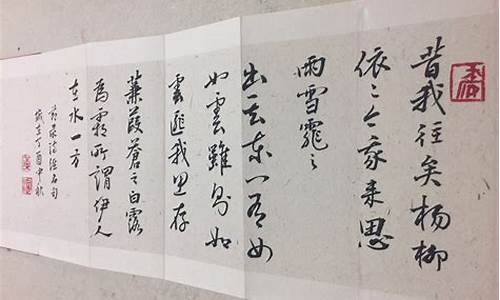 昔我往矣杨柳
依〻今我来思
雨雪霏〻
出其东门有女
如雲雖则如
雲匪我思存
蒹葭蒼〻白露
為霜所謂伊人
在水一方
诗经名句
歲在丁酉中秋